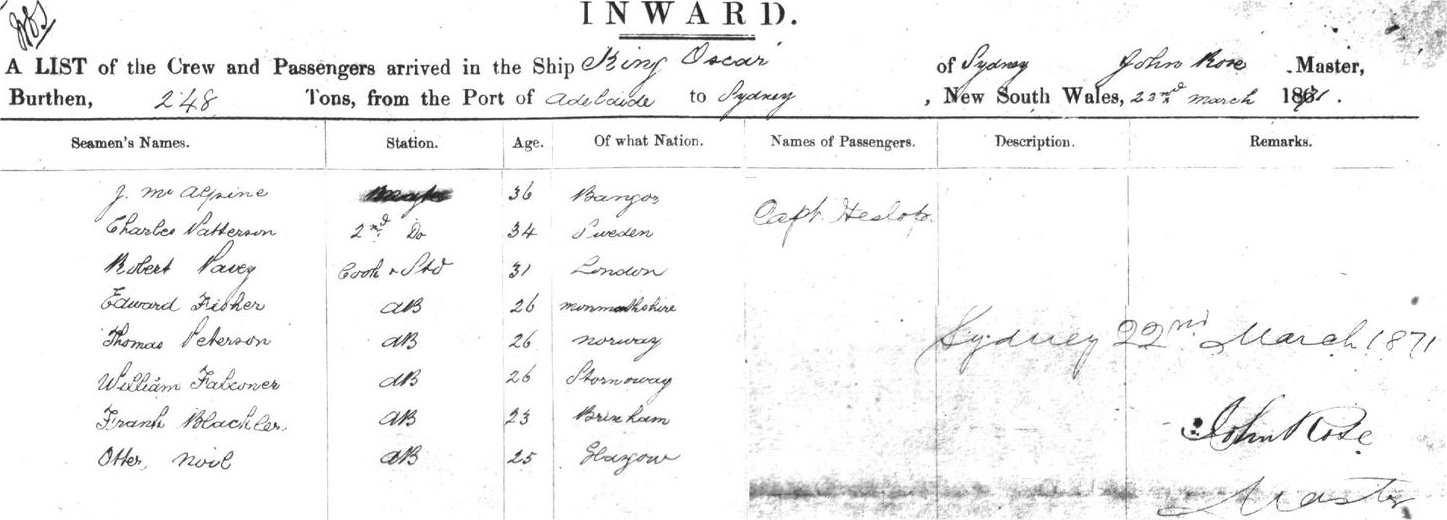 INWARD.
A LIST of the Crew and Passengers arrived in the Ship King Oscar of Sydney John Rose Master,
Burthen, 248 Tons, from the Port of Adelaide to Sydney, New South Wales, 22nd March 1871.
Seamen's Names. Station. Age. Of what Nation. Names of Passengers. Description. Remarks.
J. McAlpine 36 Bangor
Capt. Heslop.
Charles Patterson 2nd Do 34 Sweden
Robert Pavey Cook & Std 31 London
Edward Fisher AB 26 Monmouthshire
Thomas Peterson AB 26 Norway
Sydney 22nd March 1871
William Falconer AB 26 Stornoway
Frank Blachler. AB 23 Brixham
John Rose
Otter, AB 25 Glasgow
Master